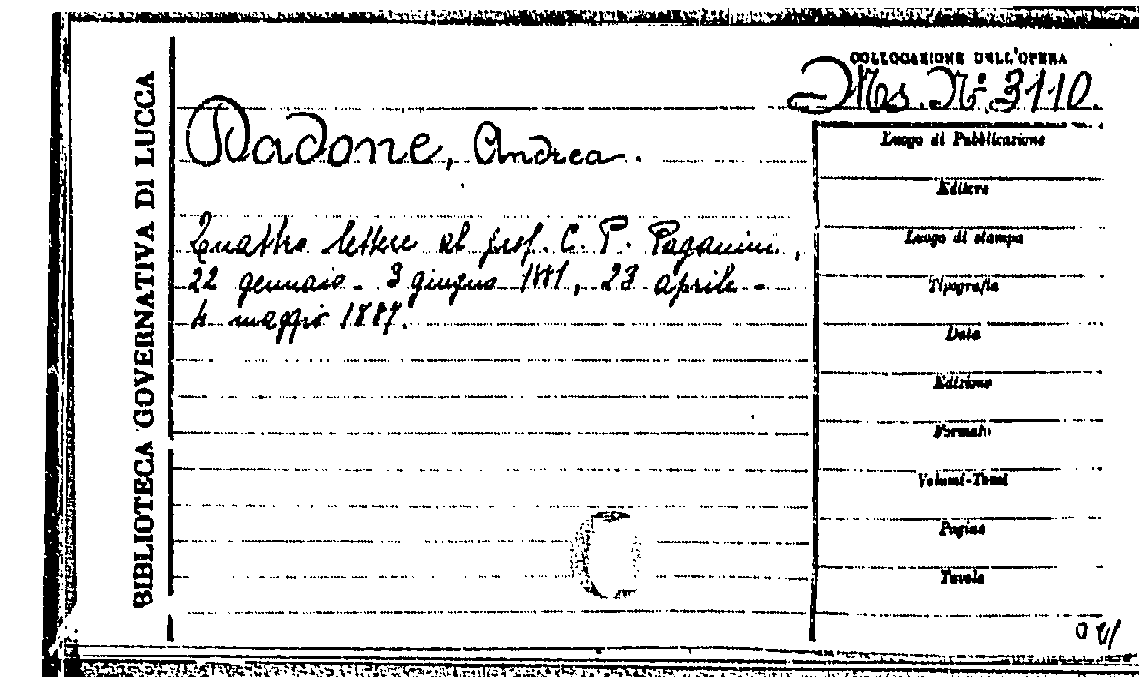 BIBLIOTECA GOVERNATIVA DI LUCCA
COLLOCAZIONE DELL'OPERA
Ms. N° 3110.
Dadone, Andrea.
Quattro lettere al prof. C. P. Paganini,
22 gennaio - 3 giugno 1881, 23 aprile -
4 maggio 1887.
Luogo di Pubblicazione
Editore
Luogo di stampa
Tipografia
Data
Edizione
Formato
Volumi-Tomi
Pagine
Tavole